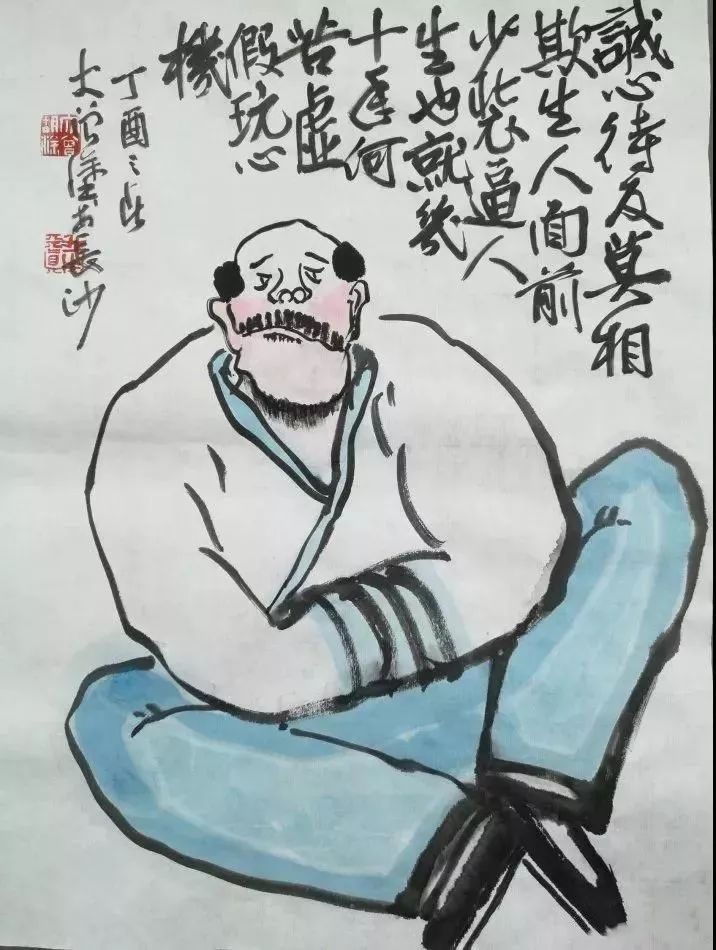 誠心待友莫相
欺生人面前
少装逼人
生也就幾
十年何
苦虛
假玩心
機
丁酉之
大曾塗於長沙